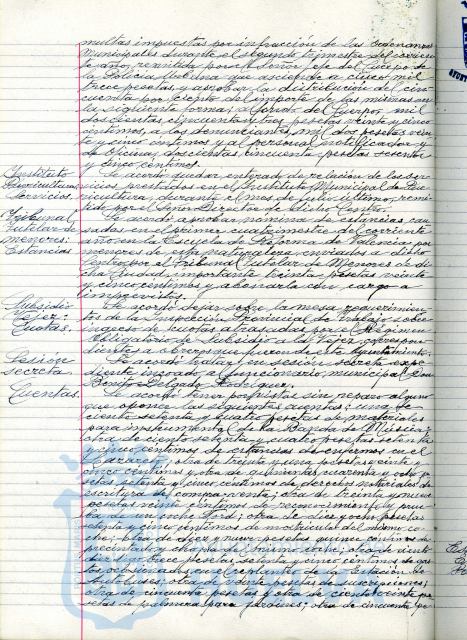 multas impuestas por infracción de las Ordenanzas
Municipales durante el segundo trimestre del corriente
año, remitida por el Señor Jefe del Cuerpo de
la Policía Urbana que asciende a cinco mil
trece pesetas y aprobar la distribución del cin-
cuenta por ciento del importe de las mismas en
la siguiente forma: al fondo del Cuerpo mil
doscientas cincuenta y tres pesetas veinte y cinco
céntimos, a los denunciantes, mil dos pesetas vein-
te y cinco céntimos y al personal notificador y
de oficina, doscientas cincuenta pesetas sesenta
y cinco céntimos.
Instituto
Puericultura
Servicios.
Se acordó quedar enterado de relación de los ser-
vicios prestados en el Instituto Municipal de Pue-
ricultura, durante el mes de julio último, remi-
tida por el Señor Director de dicho Centro.
Tribunal
Tutelar de
menores:
Estancias
Se acordó aprobar nómina de estancias cau-
sadas en el primer cuatrimestre del corriente
año en la Escuela de Reforma de Valencia por
menores de esta naturaleza enviados a dicho
Centro por el Tribunal Tutelar de Menores de di-
cha Ciudad, importante treinta pesetas veinte
y cinco céntimos y abonarla con cargo a
imprevistos.
Subsidio
Vejez:
Cuotas.
Se acordó dejar sobre la mesa requerimien-
to de la Inspección Provincial de Trabajo sobre
ingreso de cuotas atrasadas por el Régimen
Obligatorio de Subsidio a la Vejez, correspon-
dientes a obreros que fueron de este Ayuntamiento.
Sesión
secreta
Se acordó tratar en sesión secreta expe-
diente incoado al funcionario municipal Don
Benito Delgado Rodríguez.
Cuentas.
Se acordó tener por vistas sin reparo alguno
que oponer las siguientes cuentas: una de
ciento setenta y cuatro pesetas de materiales
para instrumental de la Banda de Música;
otra de ciento setenta y cuatro pesetas setenta
y cinco céntimos de estancias de enfermos en el
Lazareto; otra de treinta y una pesetas veinte y
cinco céntimos; otra de quinientas cuarenta y ocho pe-
setas, setenta y cinco céntimos de derechos notariales de
escritura de compra-venta; otra de treinta y nueve
pesetas veinte céntimos de reconocimiento y prue-
ba de un coche Ford; otra de diez y seis pesetas
setenta y cinco céntimos de matrícula del mismo co-
che; otra de diez y nueve pesetas quince céntimos de
precintado y chapa del mismo coche; otra de ciento
diez y trece pesetas setenta y cinco céntimos de gas-
tos ocasionados en el replanteo de la Estación de
Autobuses; otra de veinte pesetas de suscripciones;
otra de cincuenta pesetas y otra de ciento veinte pe-
setas de palmera para jardines; otra de cincuenta pe-